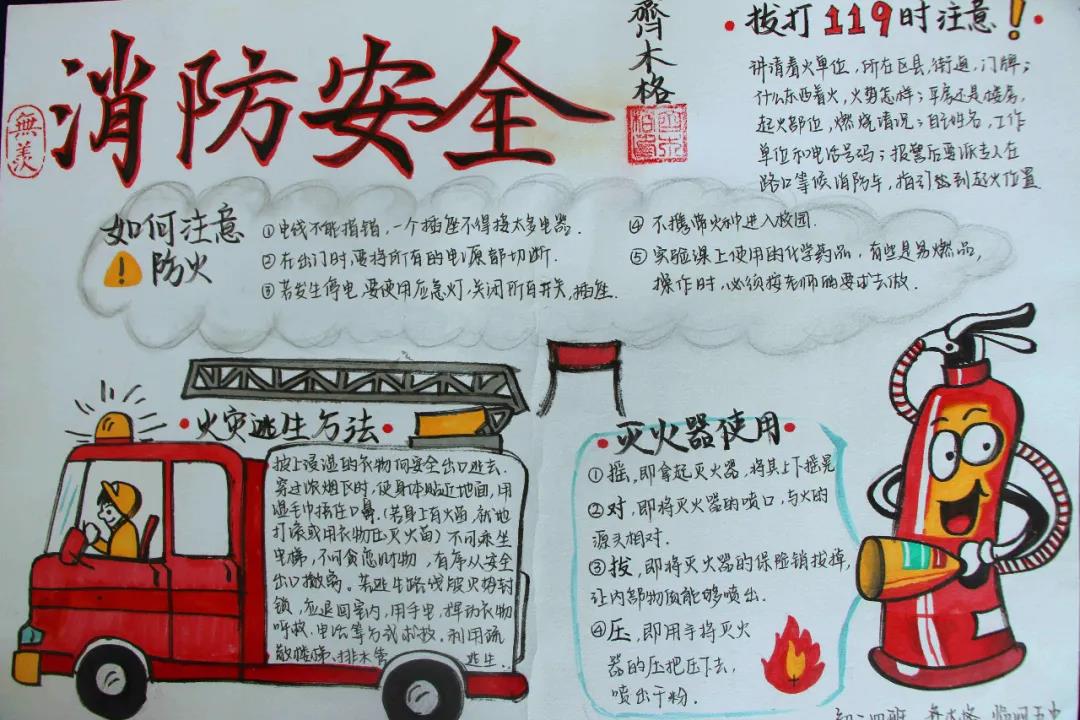 消防安全
無羡
齊木格
拔打119时注意!
讲清着火单位,所在区县,街道,门牌;
什么东西着火,火势怎样;平房还是楼房,
起火部位,燃烧情况;自己姓名,工作
单位和电话号码;报警后要派专人在
路口等候消防车,指引到起火位置
如何注意
防火
①电线不能指销,一个插座不得接太多电器.
②在出门时,要将所有的电源都切断.
③若发生停电,要使用应急灯,关闭所有开关,插座.
④不携带火种进入校园.
⑤实验课上使用的化学药品,有些是易燃品,
操作时,必须按老师的要求去做.
火灾逃生方法
披上浸湿的衣物向安全出口逃去.
穿过浓烟区时,使身体贴近地面,用
湿毛巾捂住口鼻.(若身上有火苗,就地
打滚或用衣物压灭火苗)不可乘坐
电梯,不可贪恋财物,有序从安全
出口撤离.若逃生路线被火势封
锁,应退回室内,用手电,挥动衣物
呼救,电话等方式求救.利用疏
散楼梯、排水管 逃生.
灭火器使用
①摇,即拿起灭火器,将其上下摇晃
②对,即将灭火器的喷口,与火的
源头相对.
③拔,即将灭火器的保险销拔掉,
让内部物质能够喷出.
④压,即用手将灭火
器的压把压下去,
喷出干粉.